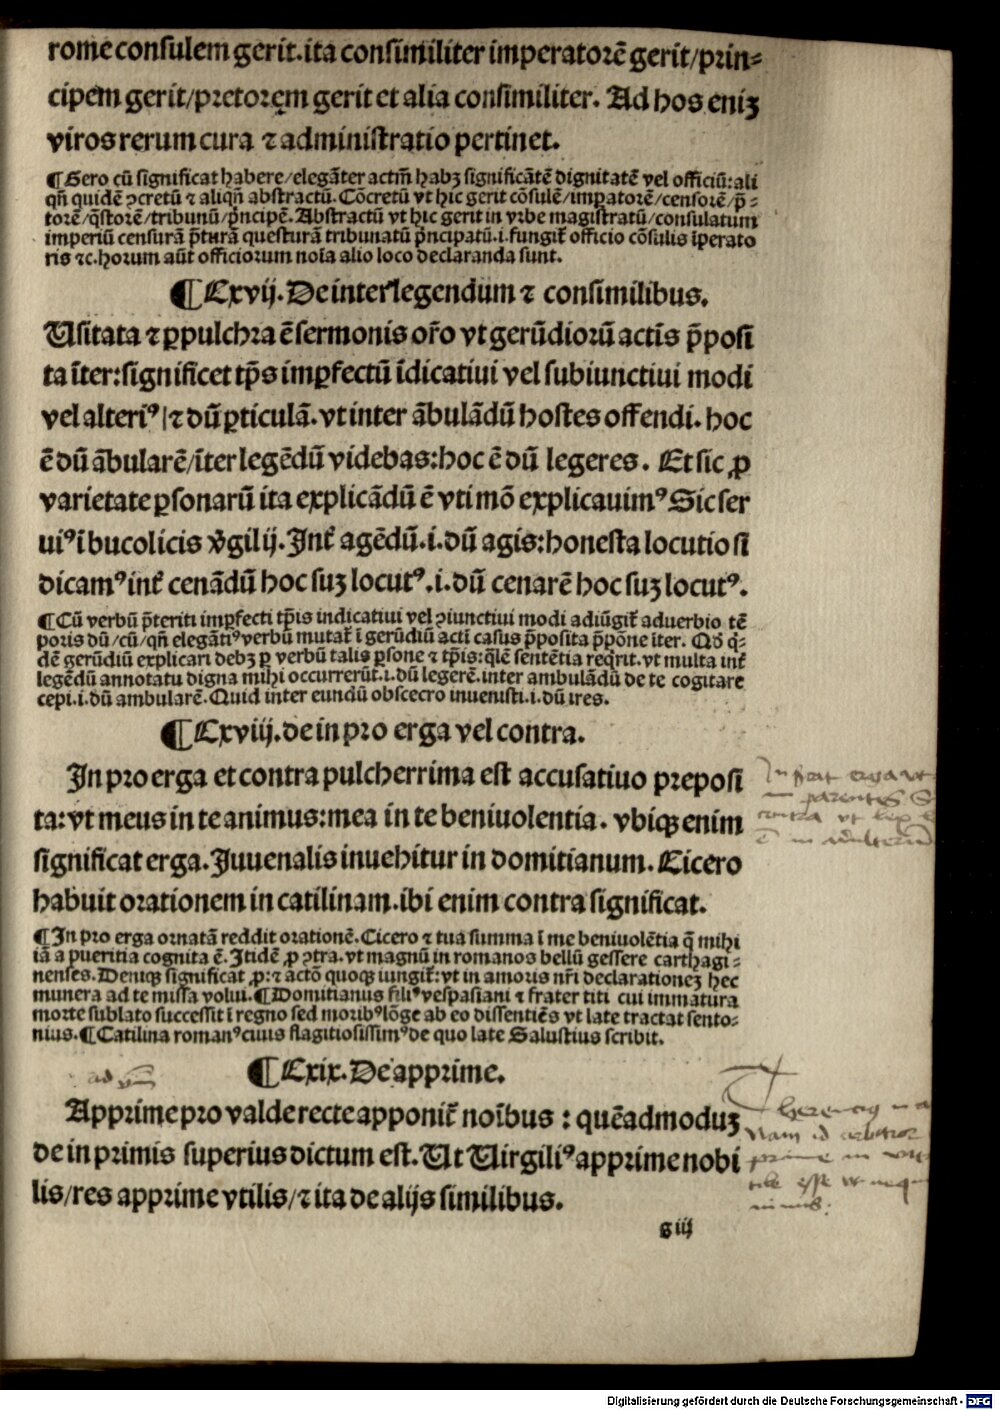 rome consulem gerit. ita consimiliter imperatorē gerit/prin⸗
cipem gerit/pretorem gerit et alia consimiliter. Ad hos eniꝫ
viros rerum cura ⁊ administratio pertinet.
¶Gero cū significat habere/elegāter actiꝫ habꝫ significātē dignitatē vel officiū: ali
qñ quidē ↄcretū ⁊ aliqñ abstractū. Cōcretū vt hic gerit cōsulē/imꝑatorē/censorē/p̄⸗
torē/q̄storē/tribunū/p̄ncipē. Abstractū vt hic gerit in vrbe magistratū/consulatum
imperiū censurā p̄turā questurā tribunatū p̄ncipatū.i. fungit᷑ officio cōsulis īperato
ris ⁊c. horum aūt officiorum noīa alio loco declaranda sunt.
¶Cxvij. De inter legendum ⁊ consimilibus.
Usitata ⁊ ꝑpulchra ē sermonis or̄o vt gerūdiorū actīs p̄posi
ta īter: significet tp̄s imꝑfectū īdicatiui vel subiunctiui modi
vel alteriꝰ/⁊ dū ꝑticulā. vt inter ābulādū hostes offendi. hoc
ē dū ābularē/īter legēdū videbas: hoc ē dū legeres. Et sic ꝓ
varietate ꝑsonarū ita explicādū ē vti mō explicauimꝰ Sic ser
uiꝰ ī bucolicis v̄gilij. Int᷑ agēdū.i. dū agis: honesta locutio si
dicamꝰ int᷑ cenādū hoc suꝫ locutꝰ.i. dū cenarē hoc suꝫ locutꝰ.
¶Cū verbū p̄teriti imꝑfecti tp̄is indicatiui vel ↄiunctiui modi adiūgit᷑ aduerbio tē
poris dū/cū/qñ elegātiꝰ verbū mutat᷑ ī gerūdiū acti casus p̄posita p̄pōne īter. Qd̓ q̇⸗
dē gerūdiū explicari debꝫ ꝑ verbū talis ꝑsone ⁊ tp̄is: q̄lē sentētia reqrit. vt multa int᷑
legēdū annotatu digna mihi occurrerūt.i. dū legerē. inter ambulādū de te cogitare
cepi.i. dū ambularē. Quid inter eundū obsecro inuenisti.i. dū ires.
¶Cxviij. de in pro erga vel contra.
In pro erga et contra pulcherrima est accusatiuo preposi
ta: vt meus in te animus: mea in te beniuolentia. vbiqꝫ enim
significat erga. Iuuenalis inuehitur in domitianum. Cicero
habuit orationem in catilinam. ibi enim contra significat.
¶In pro erga ornatā reddit orationē. Cicero ⁊ tua summa ī me beniuolētia q̄ mihi
iā a pueritia cognita ē. Itidē ꝓ ↄtra. vt magnū in romanos bellū gessere carthagi⸗
nenses. Deniqꝫ significat ꝓ: ⁊ actō quoqꝫ iungit᷑: vt in amoris nr̄i declarationeꝫ hec
munera ad te missa volui. ¶Domitianus filiꝰ vespasiani ⁊ frater titi cui immatura
morte sublato successit ī regno sed moribꝰ lōge ab eo dissentiēs vt late tractat sento⸗
nius. ¶Catilina romanꝰ ciuis flagitiosissimꝰ de quo late Salustius scribit.
¶Cxix. De apprime.
Apprime pro valde recte apponit᷑ noībus: quēadmoduꝫ
de in primis superius dictum est. Ut Uirgiliꝰ apprime nobi
lis/res apprime vtilis/⁊ ita de alijs similibus.
g iij
erga vt
parentes
contra vt lex
ē in adulterum
Nam id arbitror
prime in vita
esse vt
nimis:
Digitalisierung gefördert durch die Deutsche Forschungsgemeinschaft - DFG